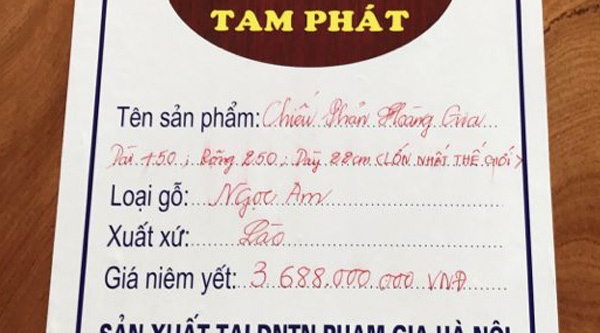 TAM PHÁT
Tên sản phẩm: Chiếu Phản Hoàng Gia
Dài 450 ; Rộng 250 ; Dày 22cm (LỚN NHẤT THẾ GIỚI)
Loại gỗ: Ngọc Am
Xuất xứ: Lào
Giá niêm yết: 3.688.000.000 VNĐ
SẢN XUẤT TẠI DNTN PHẠM GIA HÀ NỘI